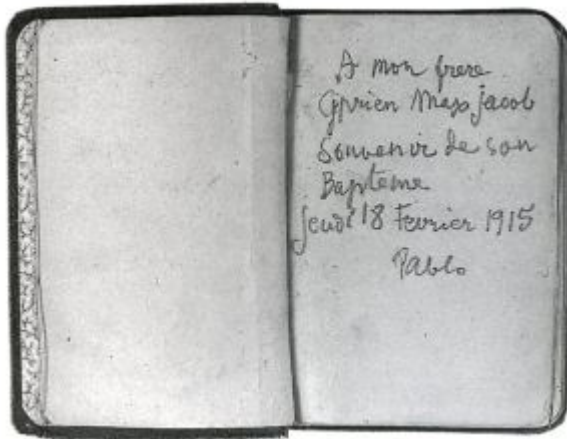 A mon frere
Cyprien Max Jacob
Souvenir de son
Bapteme
Jeudi 18 Fevrier 1915
Pablo